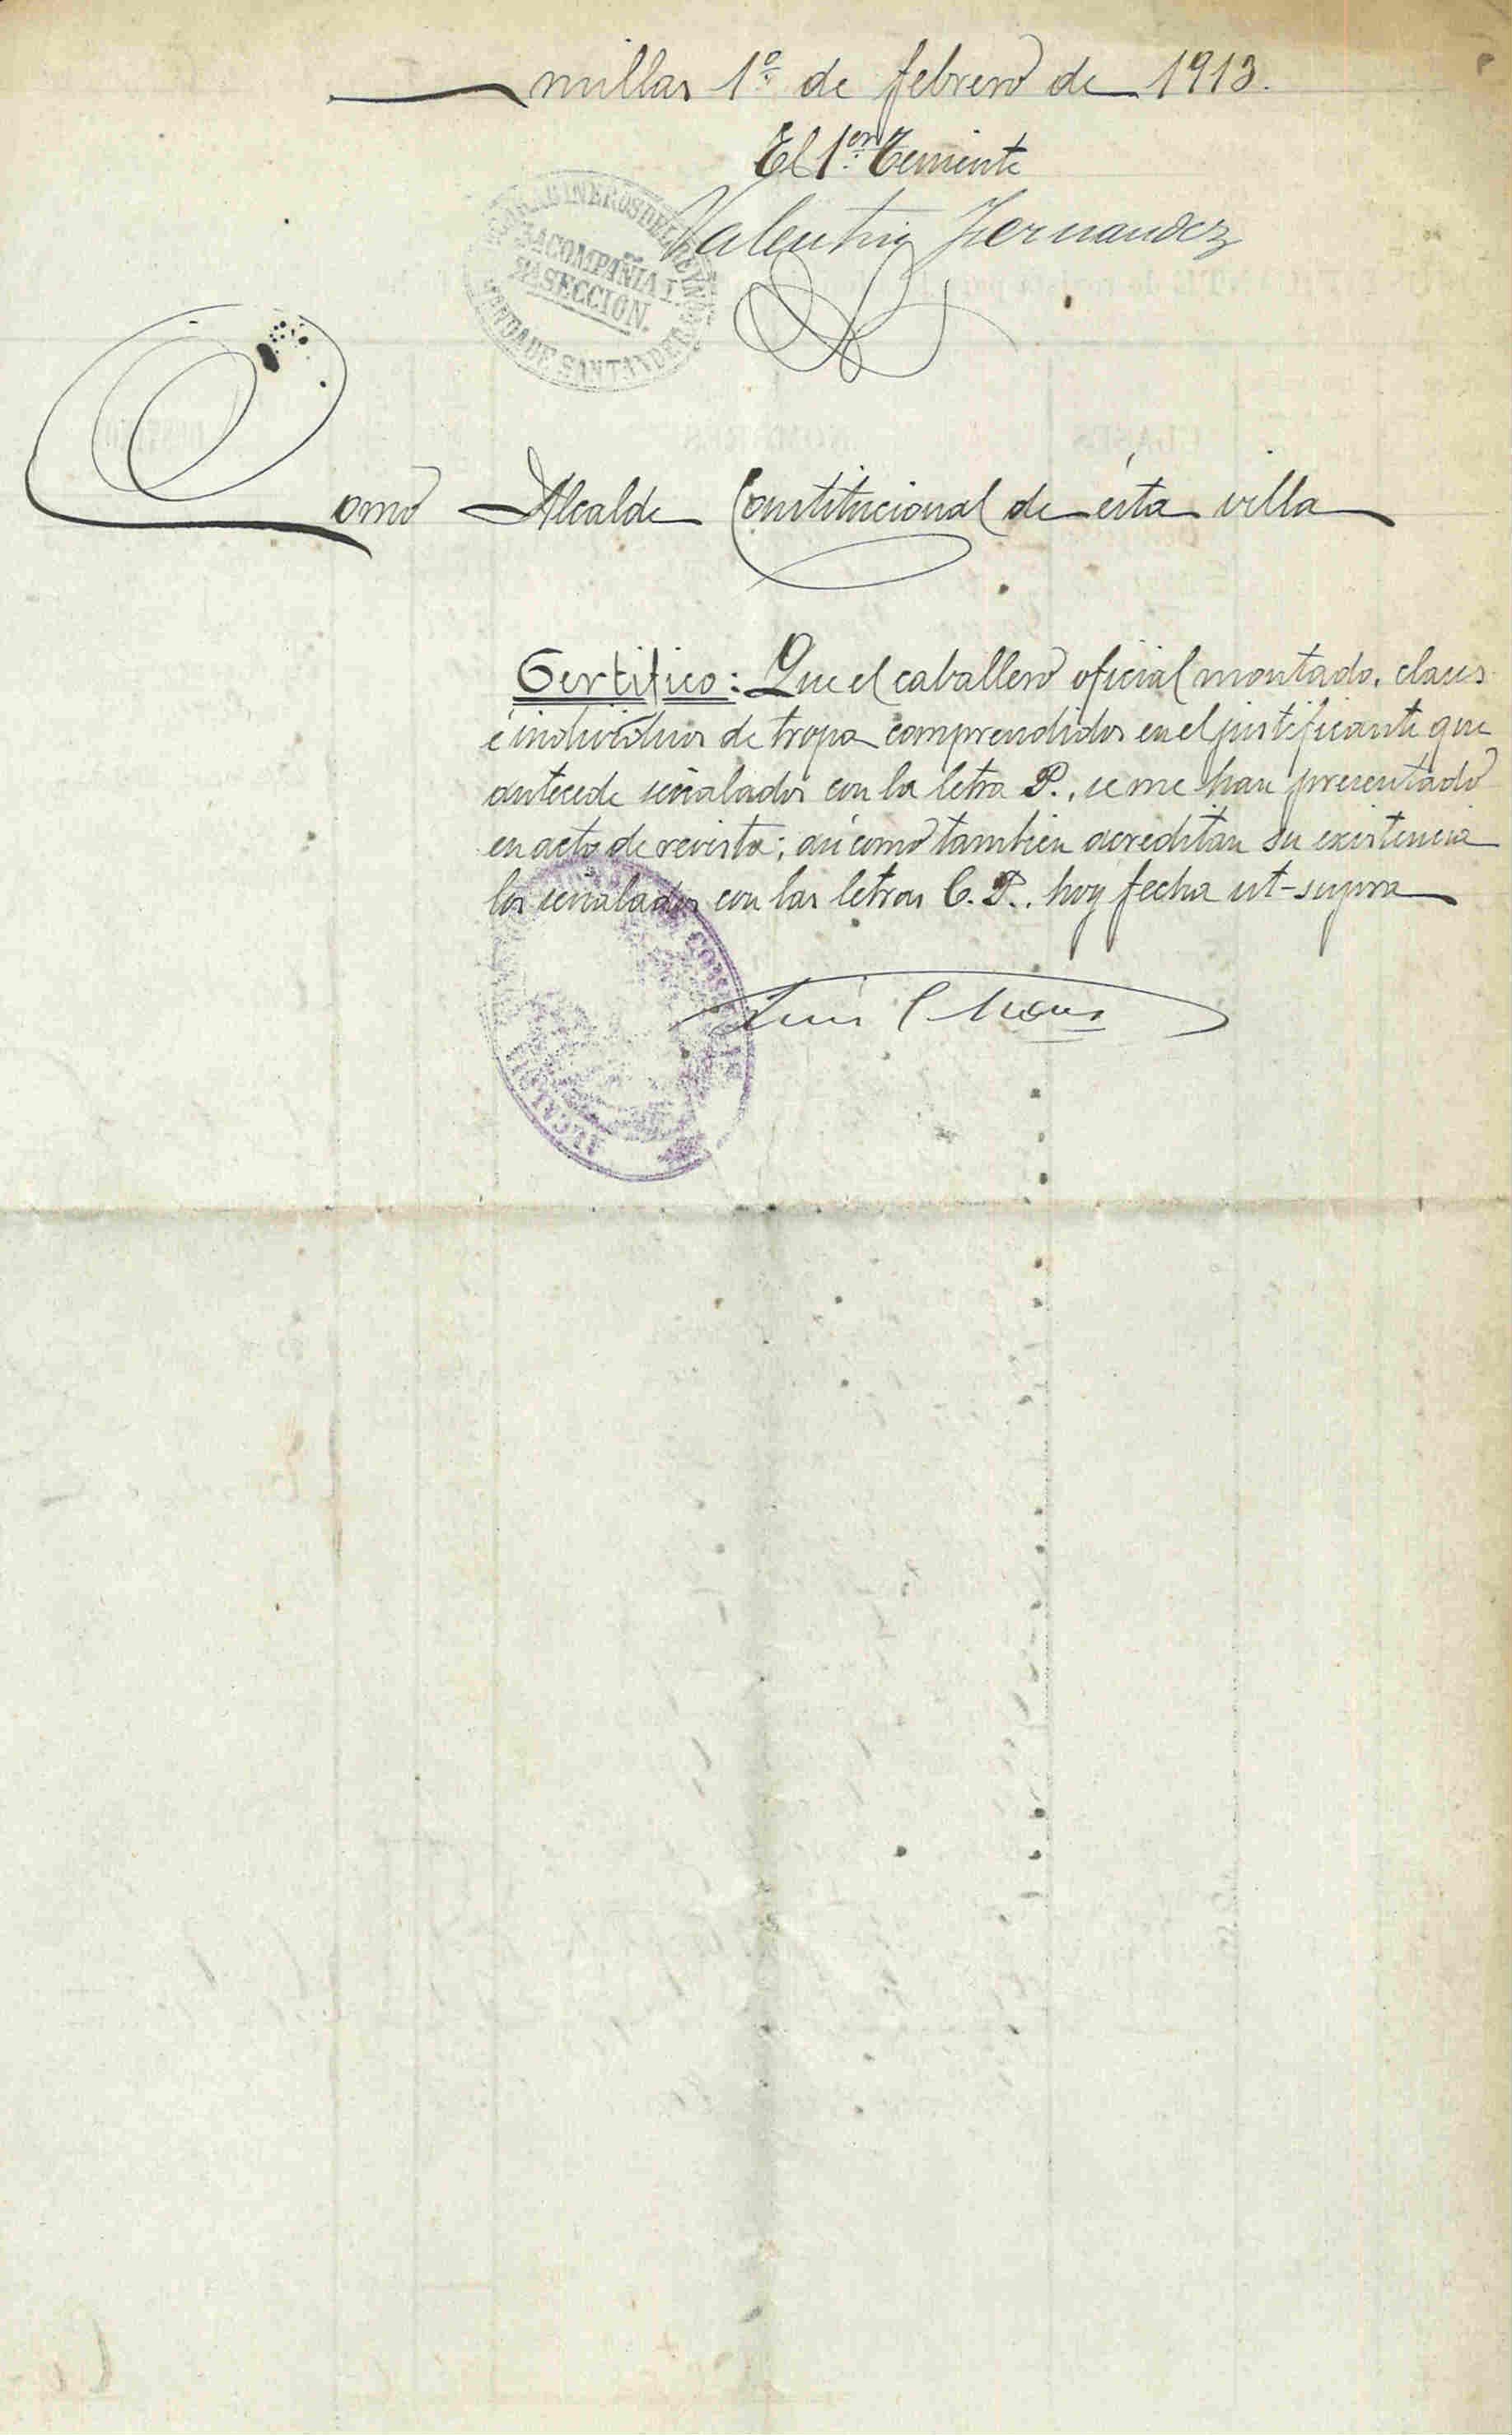 millas 1º de febrero de 1913.
El 1er Teniente
Valentin Hernandez
CARABINEROS DEL REYNO
COMPAÑIA
SECCION.
SANTANDER
Como Alcalde Constitucional de ésta villa
Certifico: Que el caballero oficial montado, clases
é individuos de tropa comprendidos en el justificante que
antecede señalados con la letra P., se me han presentado
en acto de revista; asi como tambien acreditan su existencia
los señalados con las letras C. P.. hoy fecha ut-supra
Luis